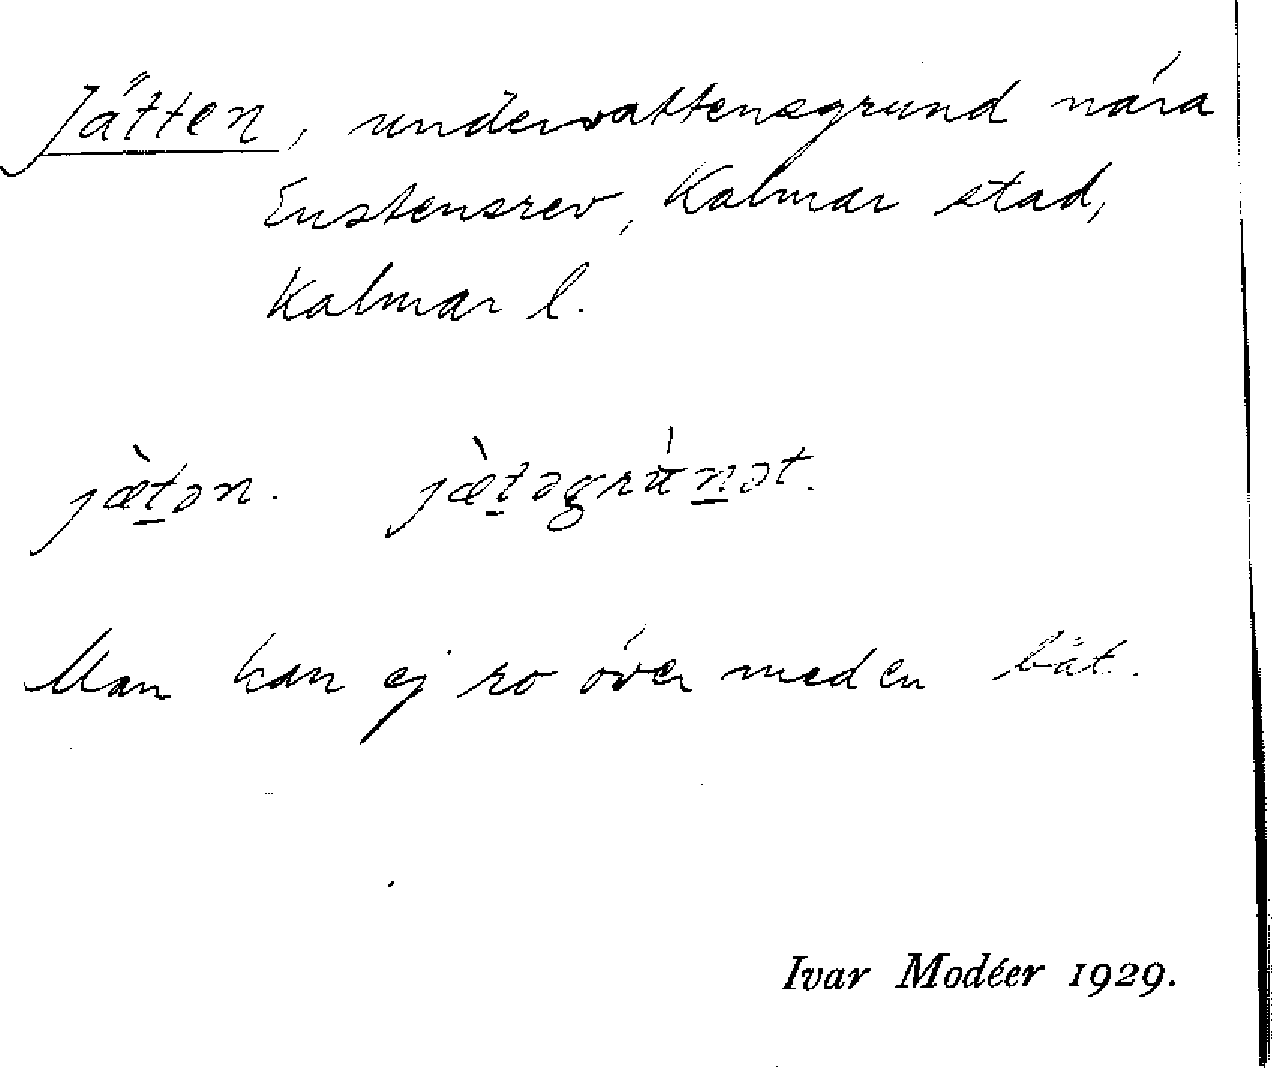 Jätten, undervattensgrund nära
Enstensrev, Kalmar stad,
Kalmar l.
jæ̀t̲ən. jæ̀t̲əgrún̲ət.
Man kan ej ro över med en båt.
Ivar Modéer 1929.